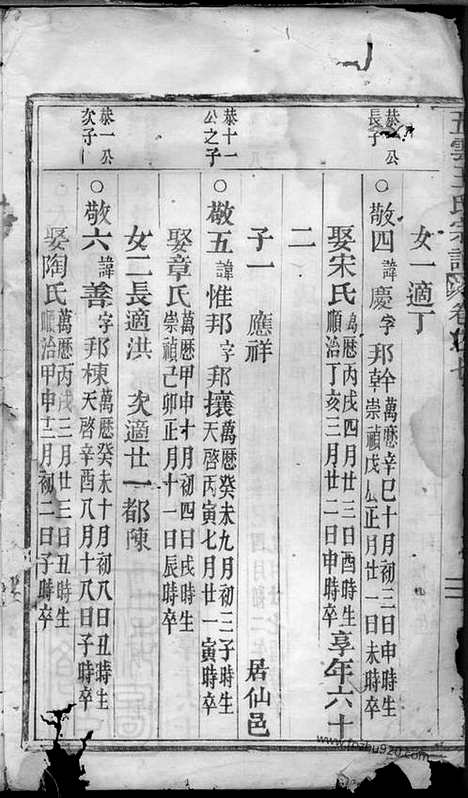 五雲王氏宗譜 卷 七
女一適丁
恭 一 公
長子
○敬四 諱慶 字邦幹 萬曆辛巳十月初三日申時生
崇禎戊 正月廿一日未時卒
娶宋氏 萬曆丙戌四月廿三日酉時生
順治丁亥三月廿二日申時卒 享年六十
二
子一 應祥 居仙邑
恭十一
公之子
○敬五 諱惟邦 字邦攘 萬曆癸未九月初三子時生
天啓丙寅七月廿一寅時卒
娶章氏 萬曆甲申十月初四日戌時生
崇禎己卯正月十一日辰時卒
女二長適洪 次適廿一都陳
恭一公
次子
○敬六 諱善 字邦棟 萬曆癸未十月初八日丑時生
天啓辛酉八月十八日子時卒
娶陶氏 萬曆丙戌三月廿三日丑時生
順治甲申十二月初二日子時卒
www.jiapu920.com